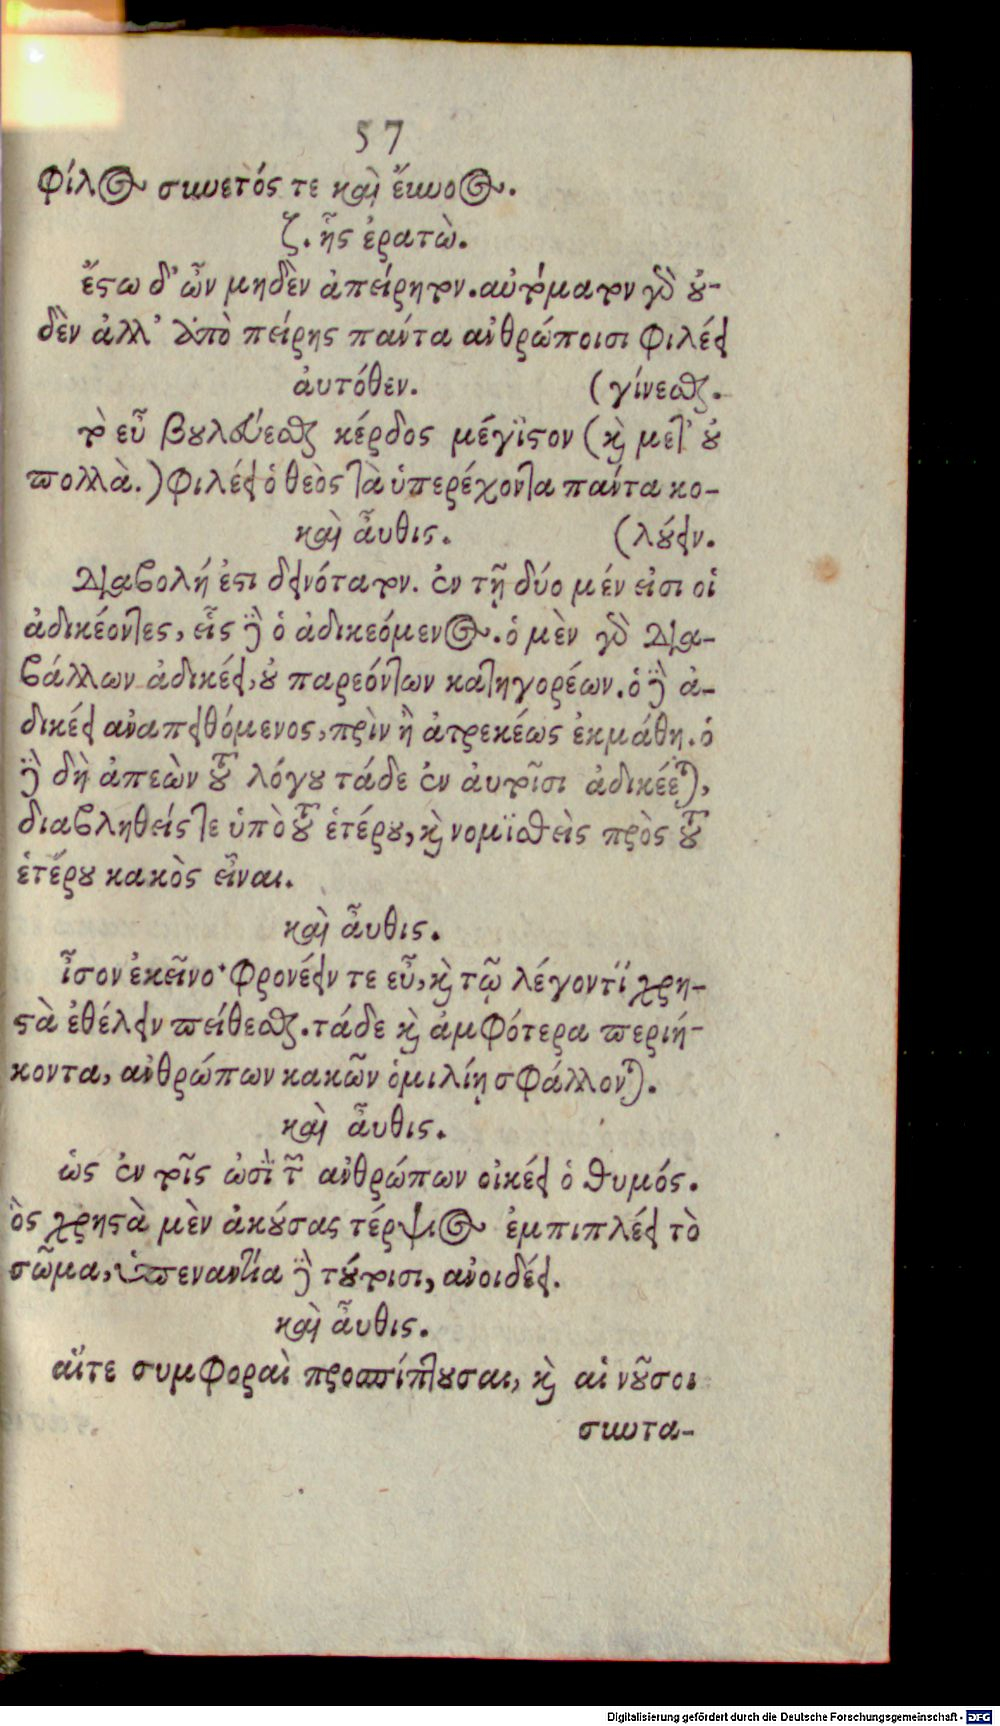 57
φίλος συνετός τε καὶ ἔυνοος.
ζ. ἧς ἐρατὼ.
ἔστω δ' ὦν μηδὲν ἀπείρητον. αὐτόματον γὰρ ού-
δὲν ἀλλ' ἀπὸ πείρης πάντα ἀνθρώποισι φιλέει
ἀυτόθεν. (γίνεσθαι.
τὸ εὖ βουλεύεσθαι κέρδος μέγϊστον (καὶ μετ' οὐ
πολλὰ.) φιλέει ὁ θεὸς τὰ ὑπερέχοντα πάντα κο-
καὶ ἆυθις. (λούειν.
Διαβολή ἐστι δεινότατον. ἐν τῇ δύο μέν εἰσι οἱ
ἀδικέοντες, εἷς δὲ ὁ ἀδικεόμενος. ὁ μὲν γὰρ Δια-
βάλλων ἀδικέει, οὐ παρεόντων κατηγορέων. ὁ δὲ ἀ-
δικέει ἀναπειθόμενος, πρὶν ἢ ἀτρεκέως ἐκμάθη. ὁ
δὲ δὴ ἀπεὼν τοῦ λόγου τάδε ἐν ἀυτοῖσι ἀδικέεται,
διαβληθείς τε ὑπὸ τοῦ ἑτέρου, καὶ νομϊσθεὶς πρὸς τοῦ
ἑτέρου κακὸς εἶναι.
καὶ ἆυθις.
ἶσον ἐκεῖνο φρονέειν τε εὖ, καὶ τῷ λέγοντϊ χρη-
στὰ ἐθέλειν πείθεσθαι. τάδε καὶ ἀμφότερα περιή-
κοντα, ἀνθρώπων κακῶν ὁμιλίῃ σφάλλονται.
καὶ ἆυθις.
ὡς ἐν τοῖς ὠσὶ τῶν ἀνθρώπων οἰκέει ὁ θυμός.
ὃς χρηστὰ μὲν ἀκούσας τέρψιος ἐμπιπλέει τὸ
σῶμα, ὑπεναντία δὲ τούτοισι, ἀνοιδέει.
καὶ ἆυθις.
αἵτε συμφοραὶ προσπίπτουσαι, καὶ αἱ νοῦσοι
συντα-
Digitalisierung gefördert durch die Deutsche Forschungsgemeinschaft - DFG